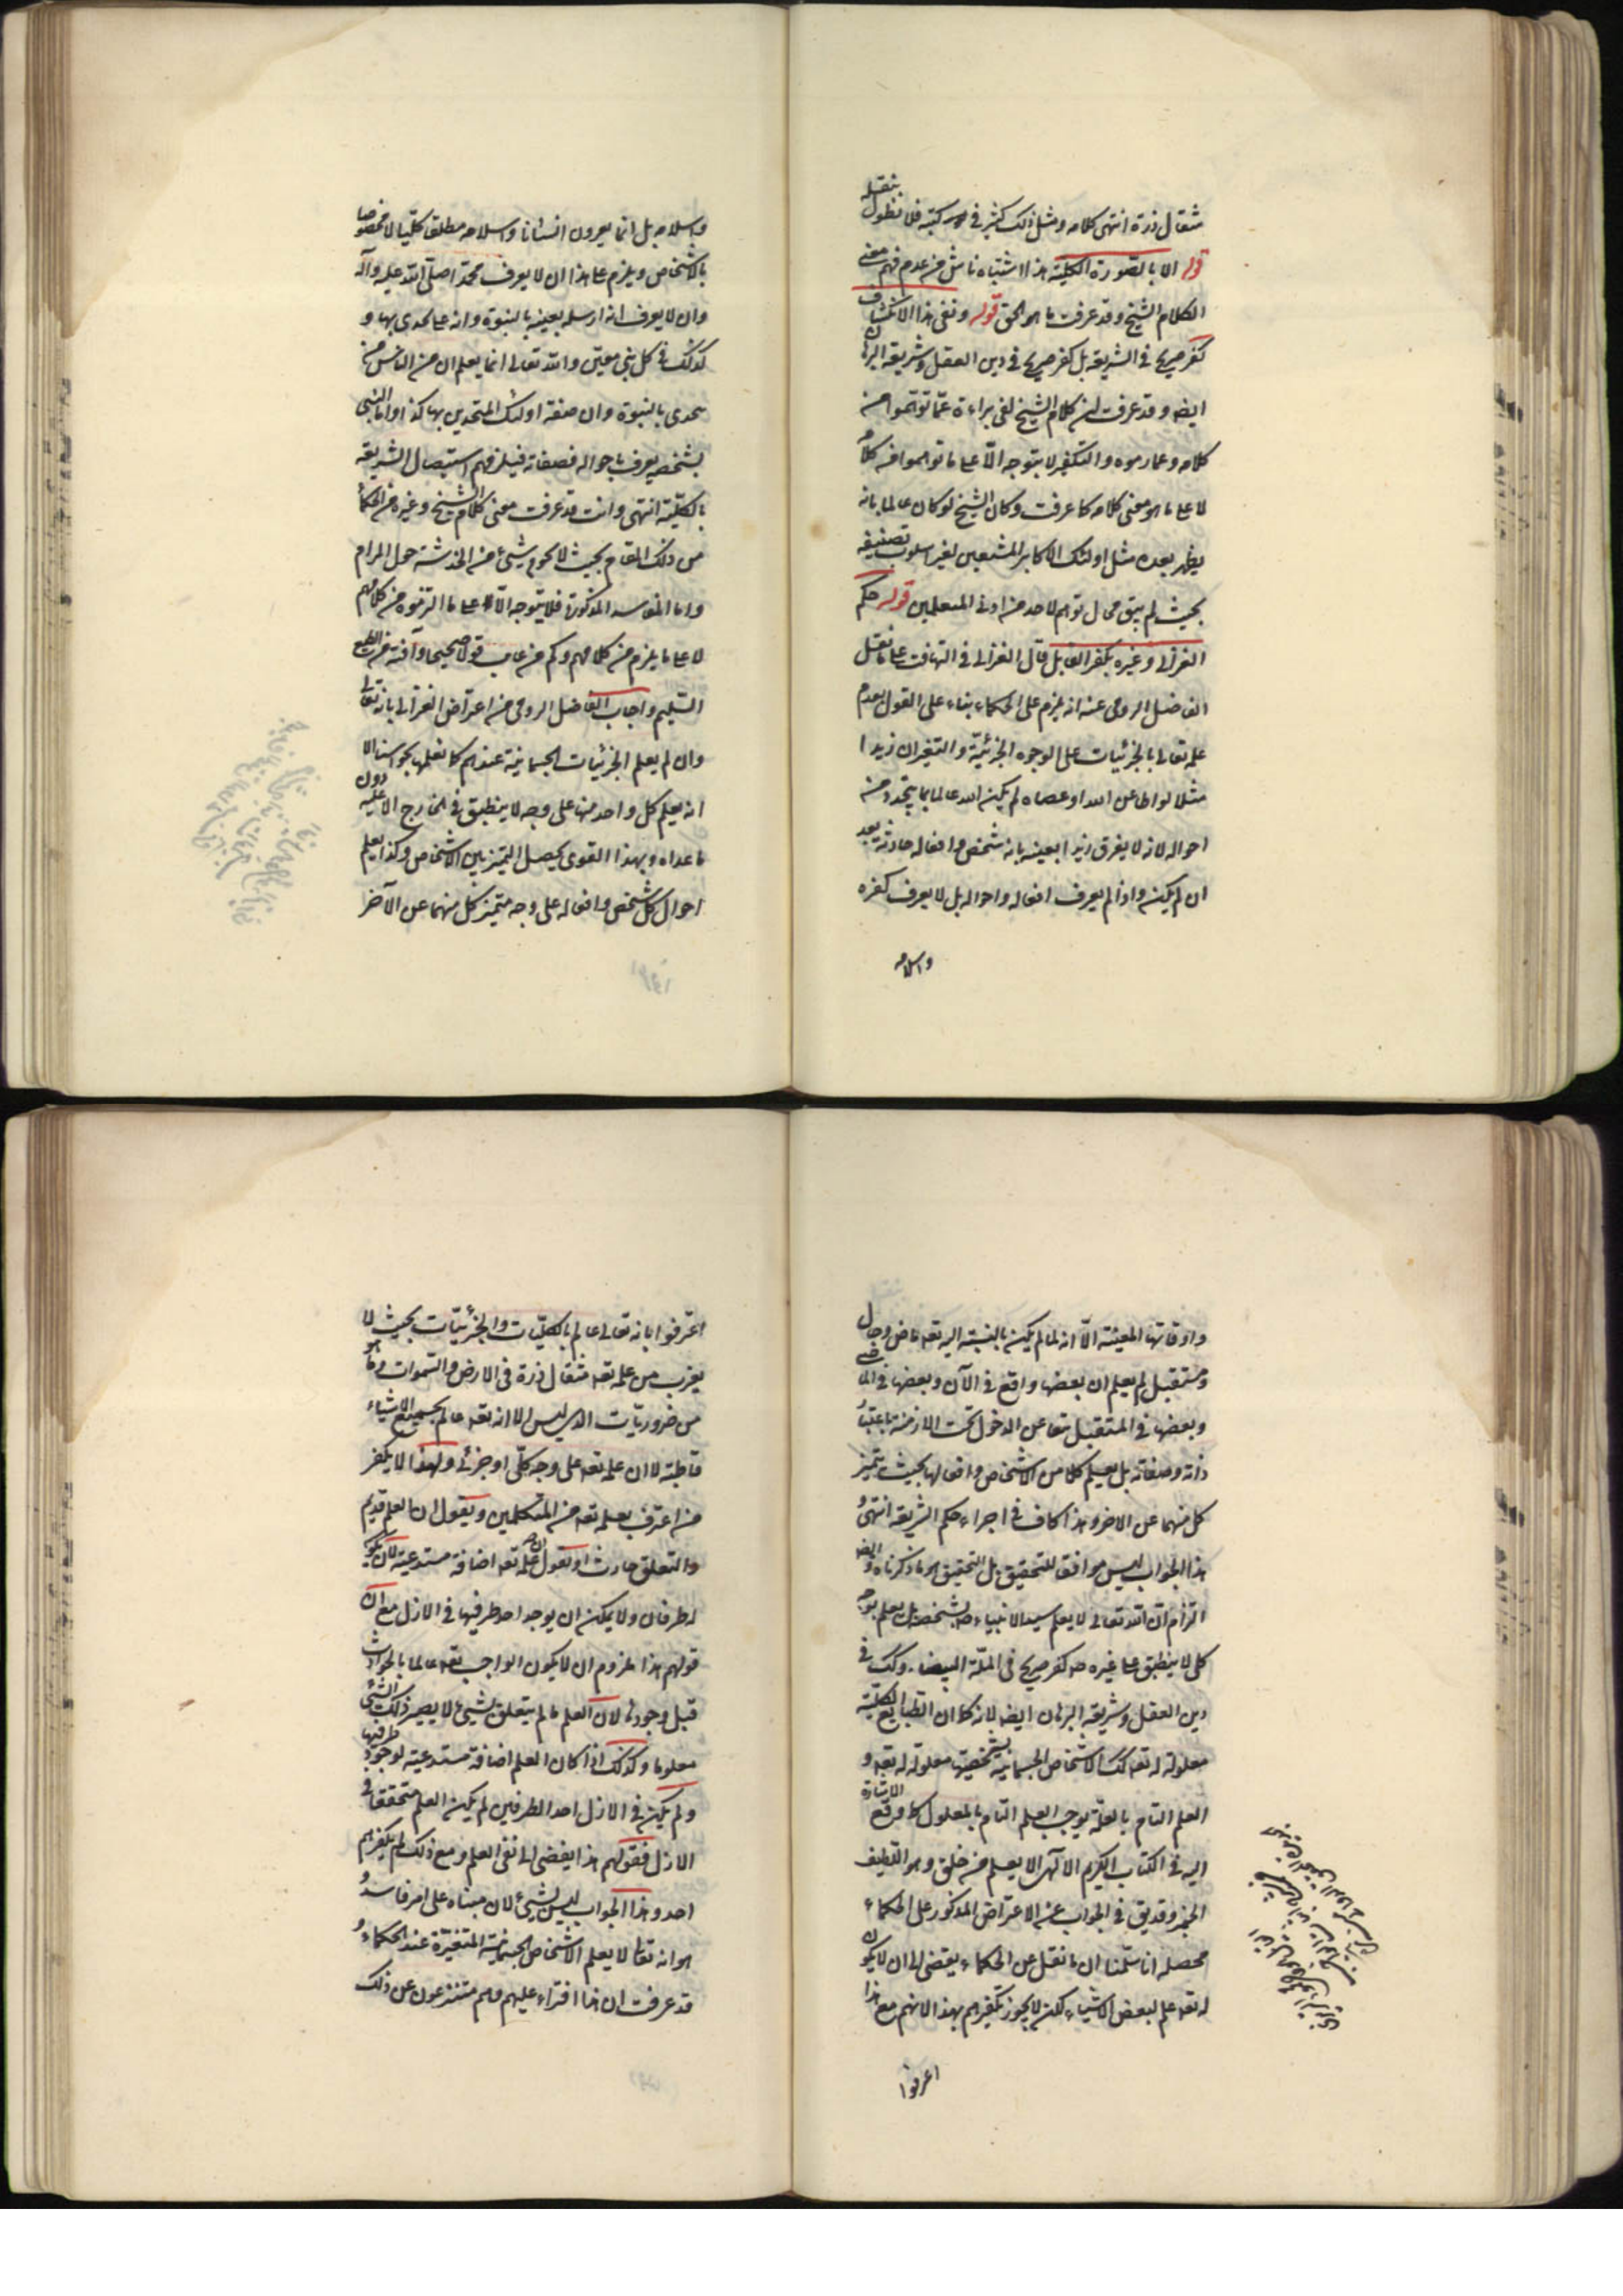 مثقال ذرة انتهى كلامه ومثل ذلك كثير في كتبه فلا نطول بنقله
قوله الا بالصورة الكلية هذا اشتباه ناش من عدم فهم معنى
الكلام الشيخ وقد عرفت ما هو الحق قوله ونفى هذا الانكشاف
كفر صريح في الشريعة بل كفر صريح في دين العقل وشريعة البرهان
ايضا وقد عرفت ان كلام الشيخ لفى براءة عما توهموا من
كلامه وعما رموه والتكفير لا يتوجه الا على ما توهموا من كلامه
لا على ما هو معنى كلامه كما عرفت وكان الشيخ لو كان عالما بانه
يظهر بعده مثل اولئك الاكابر المشنعين لغير اسلوب تصنيفه
بحيث لم يبق مجال توهم لاحد من ادنى المتعلمين قوله حكم
الغزالى وغيره بكفر القايل قال الغزالى في التهافت على ما نقل
الفاضل الرومى عنه انه يلزم على الحكماء بناء على القول بعدم
علمه تعالى بالجزئيات على الوجوه الجزئية والتغير ان زيدا
مثلا لو اطاع الله او عصاه لم يكن الله عالما بما يتجدد من
احواله لانه لا يعرف زيدا بعينه بانه شخص وافعاله حادثة بعد
ان لم يكن واذا لم يعرف افعاله واحواله بل لا يعرف كفره
واسلامه
واسلامه بل انما يعرف انسانا واسلامه مطلقا كليا لا مخصوصا
بالاشخاص ويلزم على هذا ان لا يعرف محمدا صلى الله عليه وآله
وان لا يعرف انه ارسله بعينه بالنبوة وانه على تحدى بها و
كذلك في كل نبى معين والله تعالى انما يعلم ان من الناس من
تحدى بالنبوة وان صفة اولئك المتحدين بها كذا واما النبى
بشخصه يعرف باحواله فصفاته فيلزمهم استيصال الشريعة
بالكلية انتهى وانت قد عرفت معنى كلام الشيخ وغيره من الحكماء
من ذلك المقام بحيث لا يحوم شيء من الخدشة حول المرام
واما المفاسد المذكورة فلا يتوجه الا على ما التزموه من كلامهم
لا على ما يلزم من كلامهم وكم من عايب قولا صحيحا وآفته من الطبع
السليم واجاب الفاضل الرومى من اعتراض الغزالى بانه تعالى
وان لم يعلم الجزئيات الجسمانية عندهم كما نعلمها بحواسنا الا
انه يعلم كل واحد منها على وجه لا ينطبق في الخارج الا عليه دون
ما عداه وبهذا القوى يحصل التميز بين الاشخاص وكذا يعلم
احوال كل شخص وافعاله على وجه متميز كل منهما عن الآخر
واوقاتها المعينة الا انه لما لم يكن بالنسبة اليه تعالى ماض وحال
ومستقبل لم يعلم ان بعضها واقع في الآن وبعضها في الماضى
وبعضها في المستقبل متعال عن الدخول تحت الازمنة باعتبار
ذاته وصفاته بل يعلم كلا من الاشخاص وافعالها بحيث يتميز
كل منهما عن الاخر وهذا كاف في اجراء حكم الشريعة انتهى
هذا الجواب ليس موافقا للتحقيق بل التحقيق هو ما ذكرناه وايضا
التزام ان الله تعالى لا يعلم سيد الانبياء بشخصه بل يعلم بوجه
كلى لا ينطبق على غيره كفر صريح في الملة البيضاء وكذلك في
دين العقل وشريعة البرهان ايضا لانه كما ان الطبايع الكلية
معلولة له تعه كك الاشخاص الجسمانية بشخصيتها معلولة له تعه و
العلم التام بالعلة يوجب العلم التام بالمعلول كما وقع الاشارة
اليه في الكتاب الكريم الا انه لا يعلم من خلق وهو اللطيف
الخبير وقد يق في الجواب عن الاعتراض المذكور على الحكماء
محصله انا سلمنا ان ما نقل عن الحكماء يقتضى الى ان لا يكون
له تعه علم ببعض الاشياء لكن لا يجوز تكفيرهم بهذا لانهم مع هذا
اعترفوا
اعترفوا بانه تعالى عالم بالكليات والجزئيات بحيث لا
يعزب من علمه تعه مثقال ذرة في الارض والسموات وما هو
من ضروريات الدين ليس الا انه تعه عالم بجميع الاشياء
قاطبة لا ان علمه تعه على وجه كلى او جزئى ولهذا لا يكفر
من اعترف بعلمه تعه من المتكلمين ويقول ان العلم قديم
والتعلق حادث او تقول ان علمه تعه اضافة مستدعية لان يكون
له طرفان ولا يمكن ان يوجد احد طرفيها في الازل مع ان
قولهم هذا ملزوم ان لا يكون الواجب تعه عالما بالحوادث
قبل وجودها لان العلم ما لم يتعلق بشيء لا يصير ذلك الشيء
معلوما وكذلك اذا كان العلم اضافة مستدعية لوجود طرفيها
ولم يكن في الازل احد الطرفين لم يكن العلم متحققا في
الازل فقولهم هذا يفضى الى نفى العلم ومع ذلك لم يكفرهم
احد وهذا الجواب ليس بشيء لان مبناه على امر فاسد و
هو انه تعالى لا يعلم الاشخاص الجسمانية المتغيرة عند الحكماء و
قد عرفت ان هذا افتراء عليهم وهم متنزعون عن ذلك